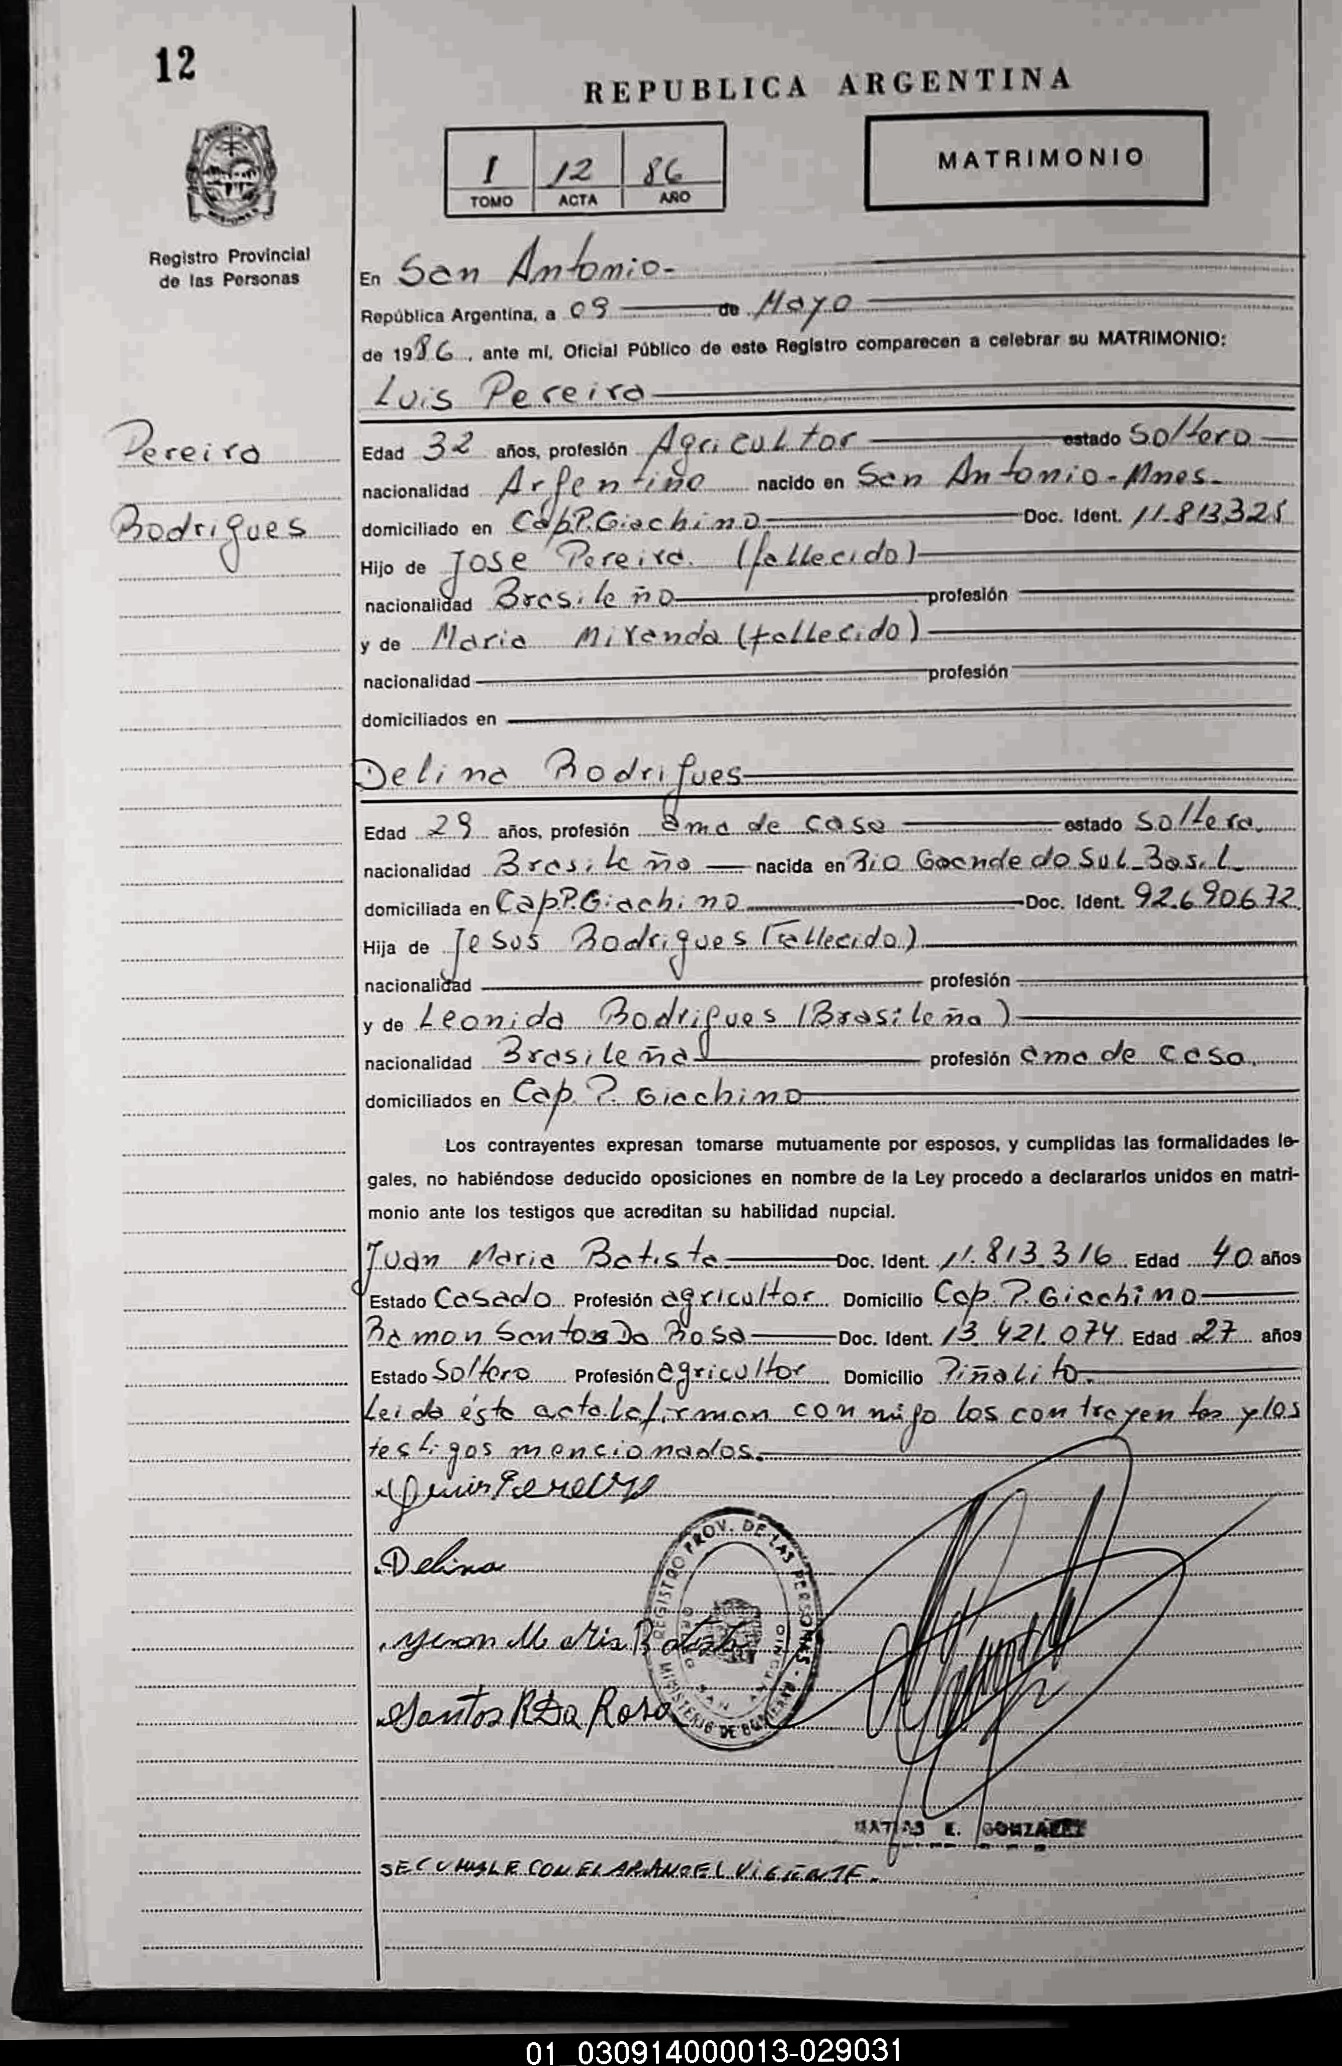 12
REPUBLICA ARGENTINA
I 12 86
TOMO ACTA AÑO
MATRIMONIO
Registro Provincial
de las Personas
En San Antonio-
República Argentina, a 09 de Mayo
de 1986, ante mí, Oficial Público de este Registro comparecen a celebrar su MATRIMONIO:
Luis Pereira
Pereira
Rodrigues
Edad 32 años, profesión Agricultor estado Soltero
nacionalidad Argentino nacido en San Antonio-Mnes.
domiciliado en Cap.P.Giachino Doc. Ident. 11.813.325
Hijo de Jose Pereira. (fallecido)
nacionalidad Brasileño profesión
y de Maria Miranda (fallecido)
nacionalidad profesión
domiciliados en
Delina Rodrigues
Edad 29 años, profesión ama de casa estado Soltera.
nacionalidad Brasileño nacida en Rio Goande do Sul-Basil
domiciliada en Cap P.Giachino Doc. Ident. 92.690.672
Hija de Jesus Rodrigues (fallecido)
nacionalidad profesión
y de Leonida Rodrigues (Brasileña)
nacionalidad Brasileña profesión ama de casa.
domiciliados en Cap. P. Giachino
Los contrayentes expresan tomarse mutuamente por esposos, y cumplidas las formalidades le-
gales, no habiéndose deducido oposiciones en nombre de la Ley procedo a declararlos unidos en matri-
monio ante los testigos que acreditan su habilidad nupcial.
Juan Maria Batista Doc. Ident. 11.813.316 Edad 40 años
Estado Casado Profesión agricultor Domicilio Cap. P. Giachino
Ramon Santos Da Rosa Doc. Ident. 13.421.074 Edad 27 años
Estado Soltero Profesión agricultor Domicilio Piñalito.
Leida ésta acta la firman con migo los contrayentes y los
testigos mencionados.
Luis Pereira
Delina
Juan Maria Batista
Santos R Da Rosa
REGISTRO PROV. DE LAS PERSONAS - MINISTERIO DE GOBIERNO
SAN ANTONIO
MATIAS E. GONZALEZ
SE CUMPLE CON EL ARANCEL VIGENTE.
01_030914000013-029031